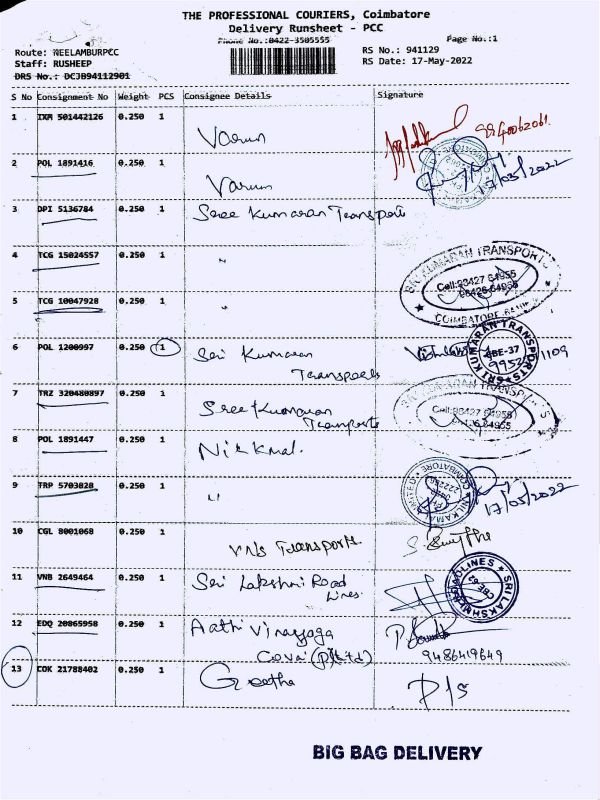 THE PROFESSIONAL COURIERS, Coimbatore
Delivery Runsheet - PCC
Phone No.:0422-3505555
Page No.:1
Route: NEELAMBURPCC
RS No.: 941129
Staff: RUSHEEP
RS Date: 17-May-2022
DRS No.: DCJB94112901
S No Consignment No Weight PCS Consignee Details Signature
1 IXM 501442126 0.250 1 Varun
2 POL 1891416 0.250 1 Varun 17/05/2022
3 DPI 5136784 0.250 1 Sree Kumaran Transports
4 TCG 15024557 0.250 1 "
5 TCG 10047928 0.250 1 "
SRI KUMARAN TRANSPORTS
Cell:98427 64955
98426 64955
6 POL 1200997 0.250 1 Sri Kumaran
Transports
SRI KUMARAN TRANSPORTS
CBE-37
7 TRZ 320480897 0.250 1 Sree Kumaran
Transports
8 POL 1891447 0.250 1 Nilkmal
9 TRP 5703828 0.250 1 "
17/05/2022
10 CGL 8001068 0.250 1 VNS Transports
11 VNB 2649464 0.250 1 Sri Lakshmi Road
Lines
12 EDQ 20865958 0.250 1 Aathi Vinayaga
Covai (P) Ltd)
9486419649
13 COK 21788402 0.250 1 Geetha
BIG BAG DELIVERY